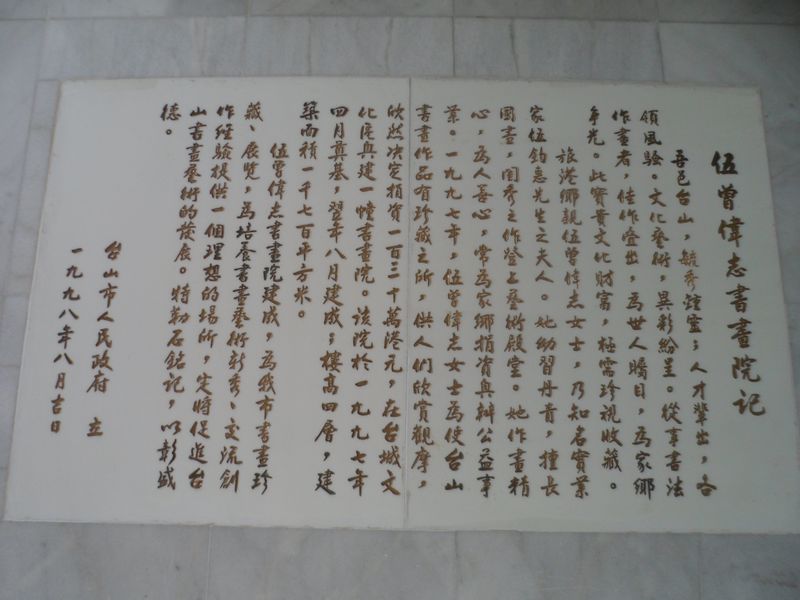 伍曾偉志書畫院記
吾邑台山，毓秀鍾靈；人才輩出，各
領風騷。文化藝術，異彩紛呈。從事書法
作畫者，佳作叠出，為世人矚目，為家鄉
争光。此寳貴文化財富，極需珍視收藏。
旅港鄉親伍曾偉志女士，乃知名實業
家伍鈞惠先生之夫人。她幼習丹青，擅長
國畫，閨秀之作登上藝術殿堂。她作畫精
心，為人善心，常為家鄉捐資興辦公益事
業。一九九七年，伍曾偉志女士為使台山
書畫作品有珍藏之所，供人們欣賞觀摩，
欣然决定捐資一百三十萬港元，在台城文
化區興建一幢書畫院。該院於一九九七年
四月奠基，翌年八月建成；樓高四層，建
築面積一千七百平方米。
伍曾偉志書畫院建成，為我市書畫珍
藏、展覽，為培養書畫藝術新秀、交流創
作經驗提供一個理想的場所，定將促進台
山書畫藝術的發展。特勒石銘記，以彰盛
德。
台山市人民政府 立
一九九八年八月吉日